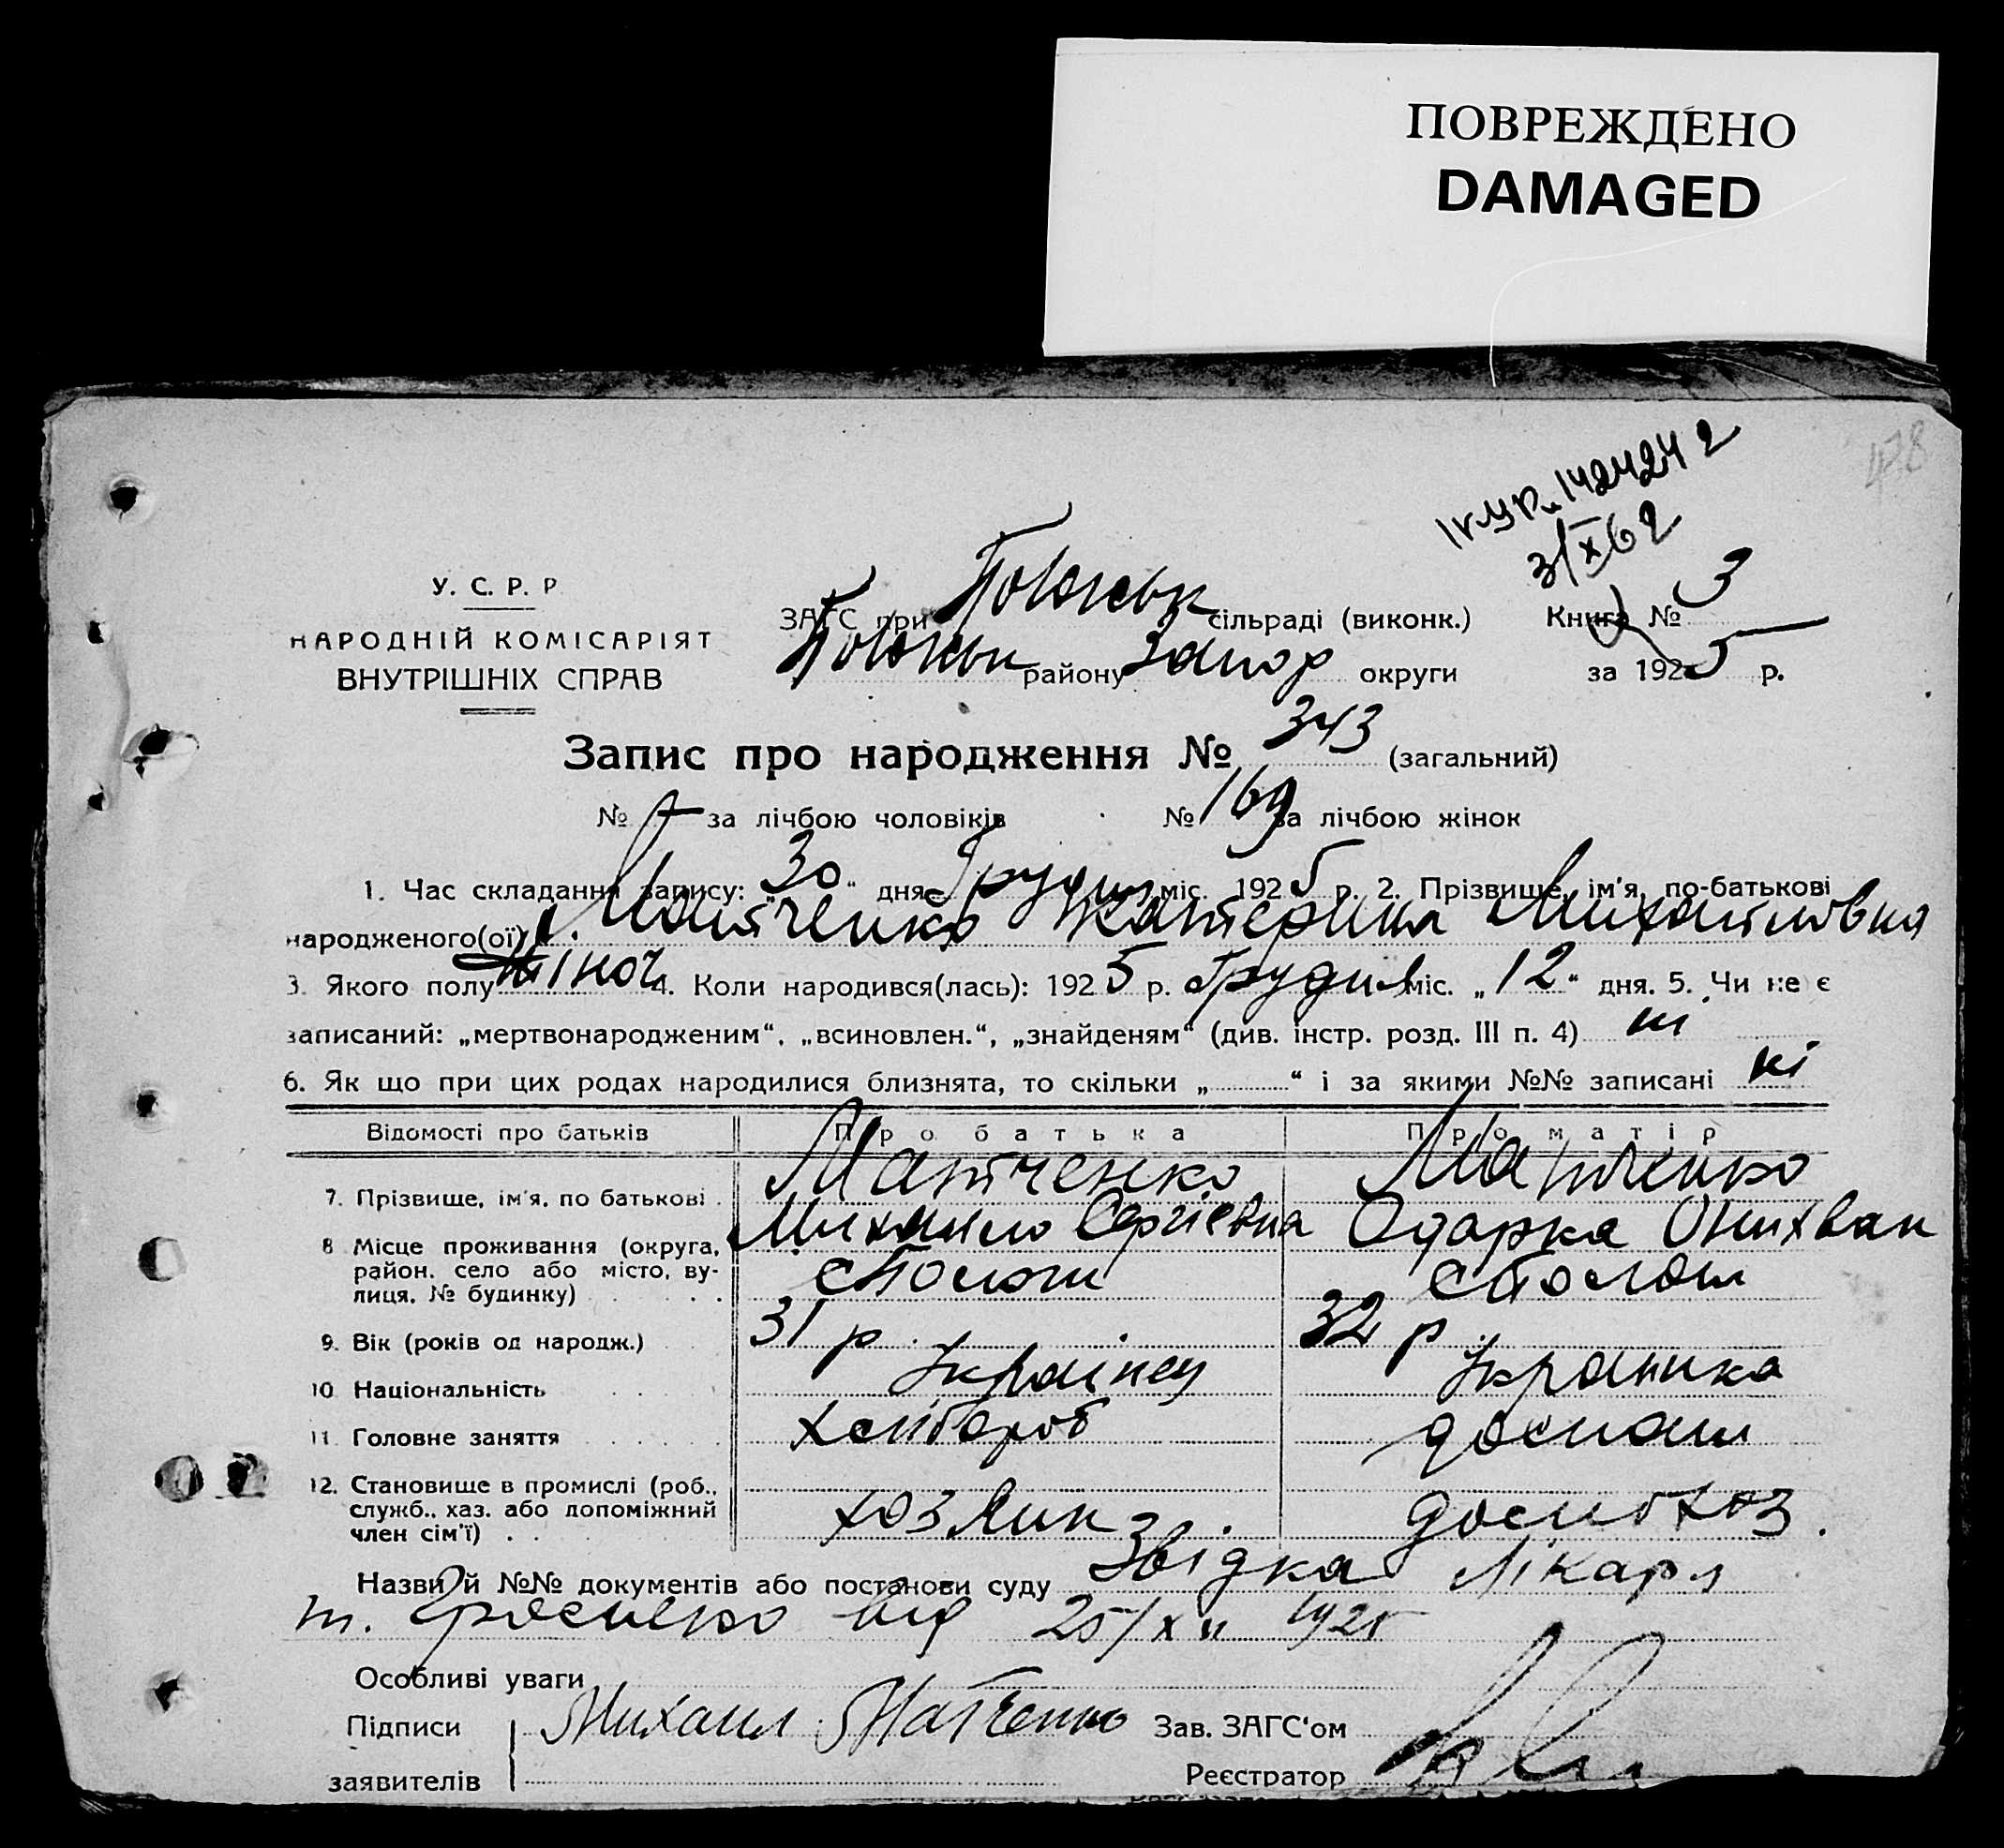 ПОВРЕЖДЕНО
DAMAGED
478
142424 2
31/X 62
У. С. Р. Р
НАРОДНІЙ КОМІСАРІЯТ
ВНУТРІШНІХ СПРАВ
ЗАГС при сільраді (виконк.) Книга № 3
району Запор округи за 1925 р.
Запис про народження № 343 (загальний)
№ за лічбою чоловіків № 169 за лічбою жінок
1. Час складання запису: „30“ дня Грудня міс. 1925 р. 2. Прізвище, ім'я, по-батькові
народженого(ої) Матченко Катерина Михайловна
3. Якого полу жіноч 4. Коли народився(лась): 1925 р. Грудня міс. „12“ дня. 5. Чи не є
записаний: „мертвонародженим“, „всиновлен.“, „знайденям“ (див. інстр. розд. III п. 4) ні
6. Як що при цих родах народилися близнята, то скільки „ “ і за якими №№ записані ні
Відомості про батьків Про батька Про матір
7. Прізвище, ім'я, по батькові Матченко Матченко
Михайло Сергієвна Одарка
8 Місце проживання (округа,
район, село або місто, ву-
лиця, № будинку)
9. Вік (років од народж.) 31 р. 32 р
10 Національність Українец Украинка
11. Головне заняття хлибороб
12. Становище в промислі (роб.,
служб., хаз. або допоміжний
член сім'ї) хозяин
Назви й №№ документів або постанови суду Звідка лікаря
т. від 25/XII 1925
Особливі уваги
Підписи Михаил Матченко Зав. ЗАГС‘ом
заявителів Реєстратор